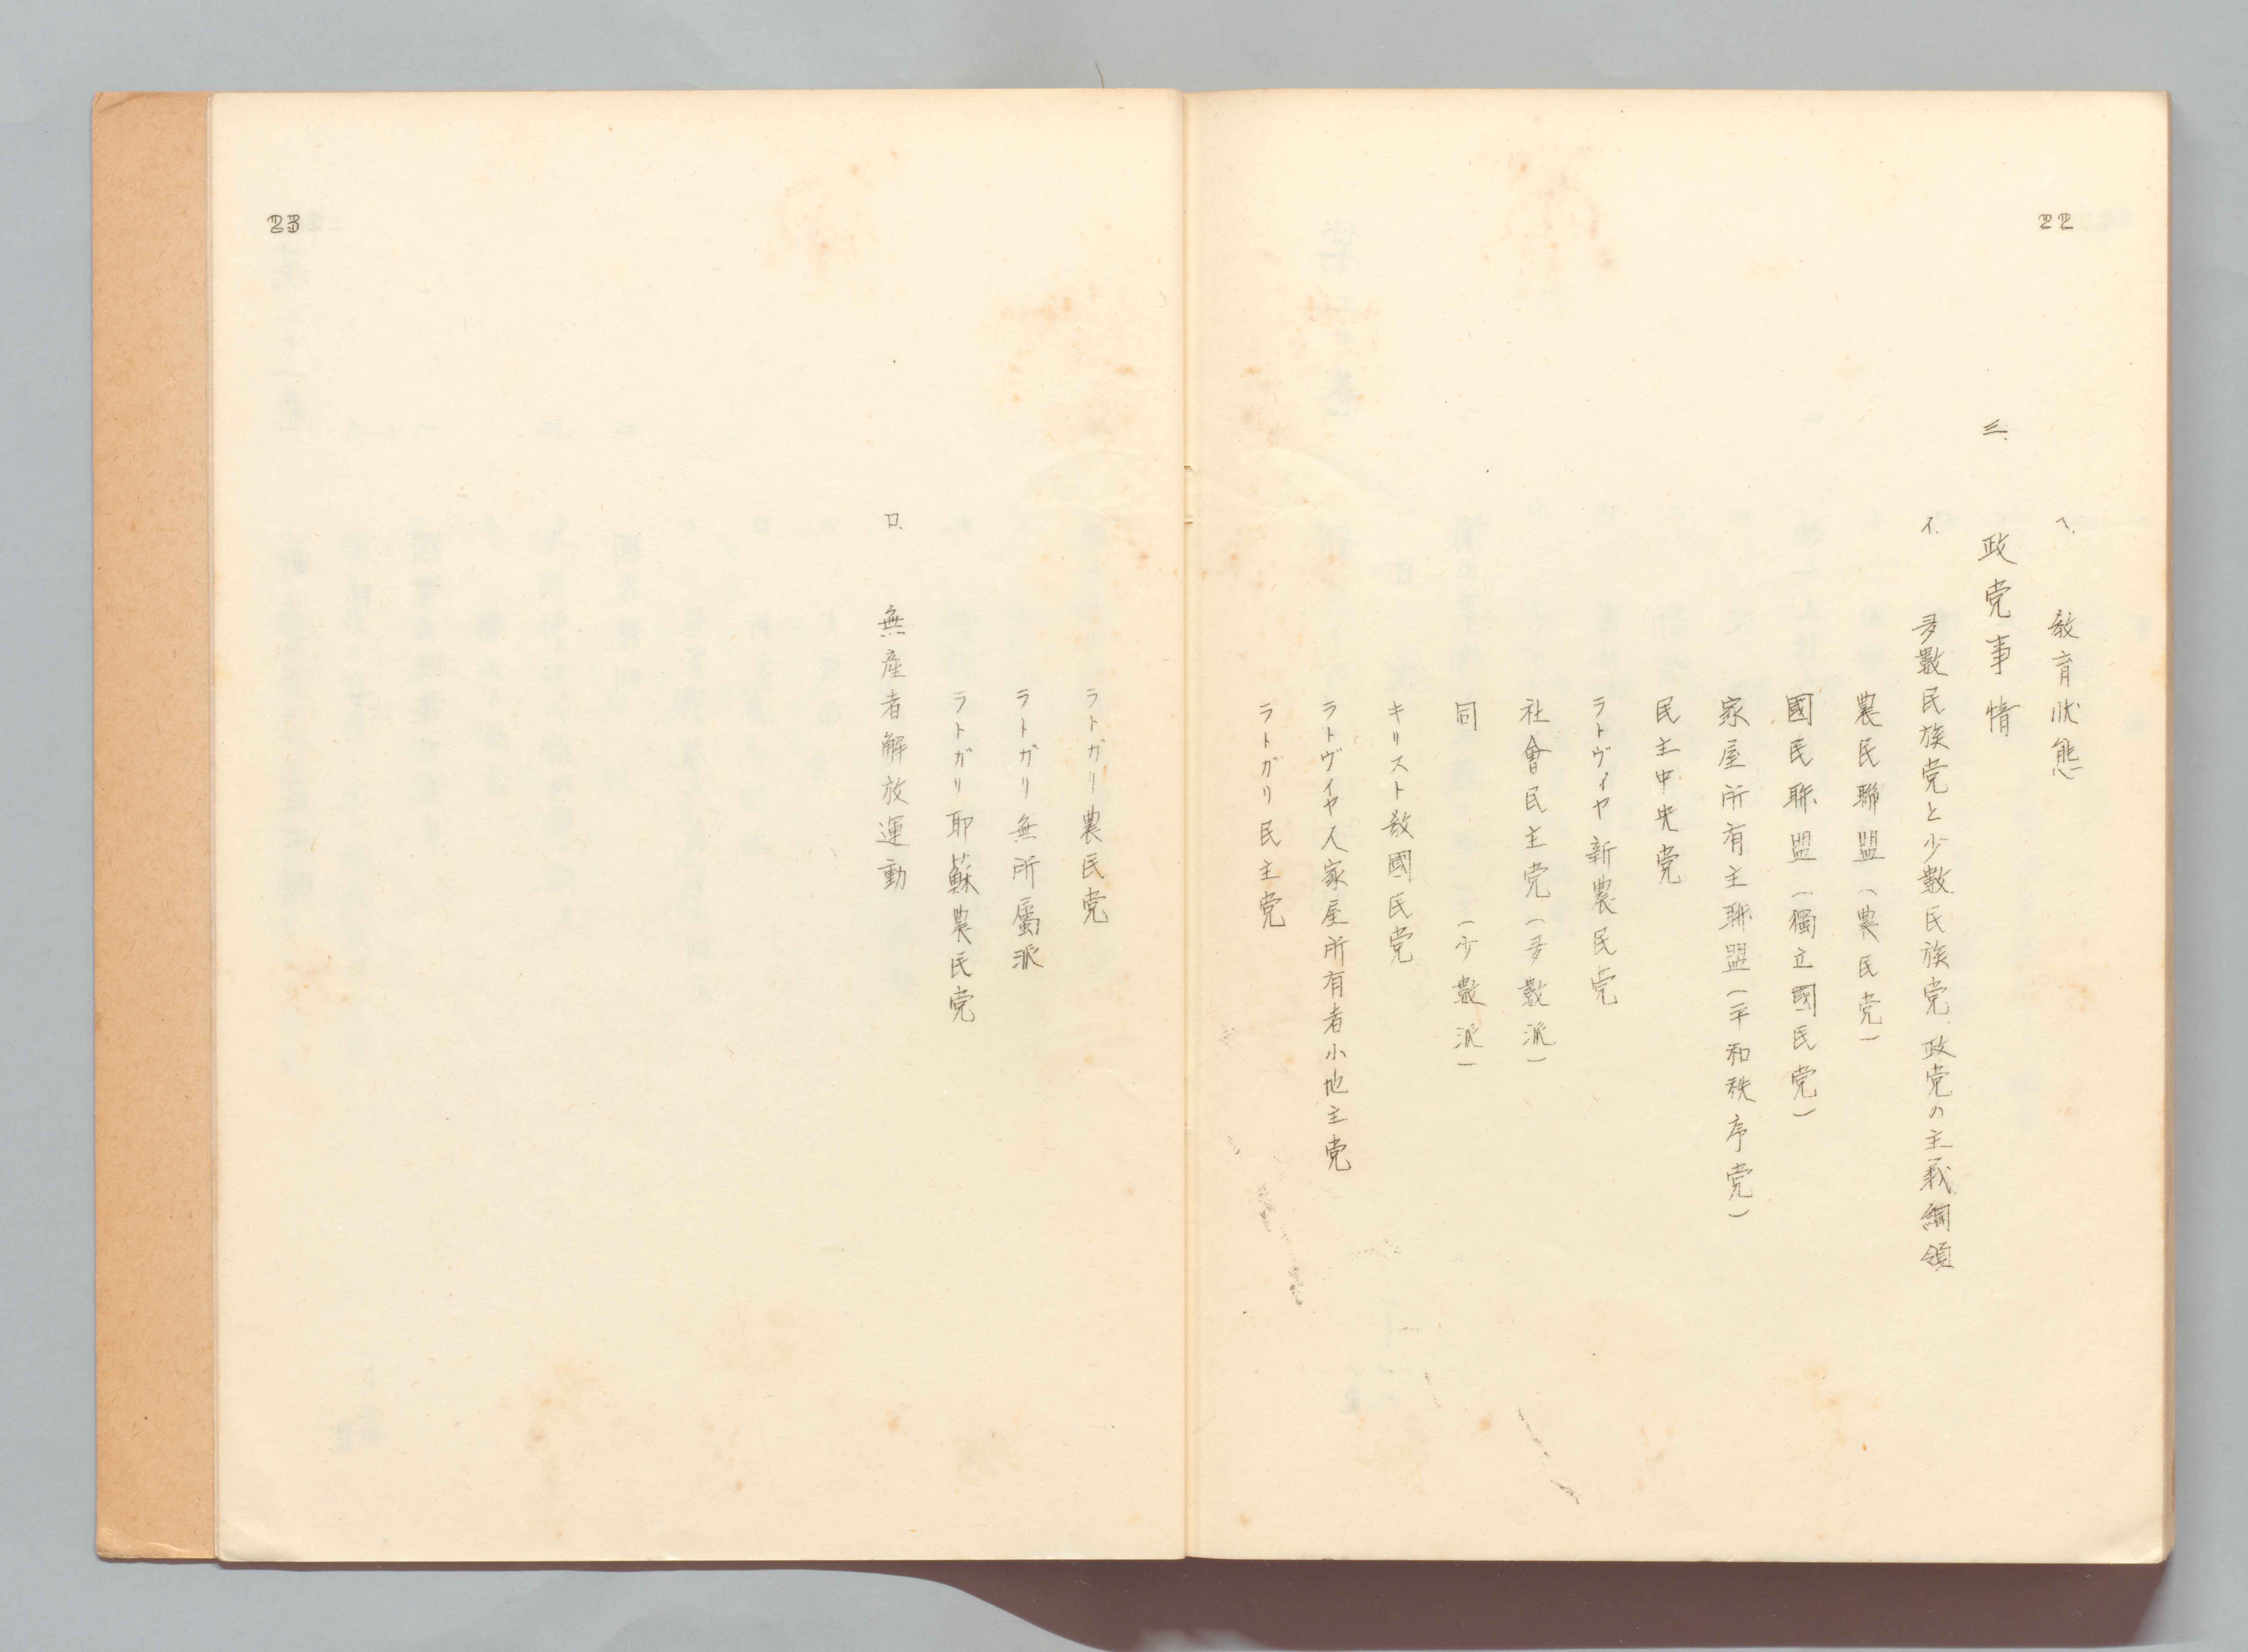 22
ヘ. 教育状態
三. 政党事情
イ. 多數民族党と少數民族党、政党の主義綱領
農民聯盟(農民党)
國民聯盟(獨立國民党)
家屋所有主聯盟(平和秩序党)
民主中央党
ラトヴィヤ新農民党
社會民主党(多數派)
同 (少數派)
キリスト教國民党
ラトヴィヤ人家屋所有者小地主党
ラトガリ民主党
23
ラトガリ農民党
ラトガリ無所屬派
ラトガリ耶蘇農民党
ロ. 無産者解放運動